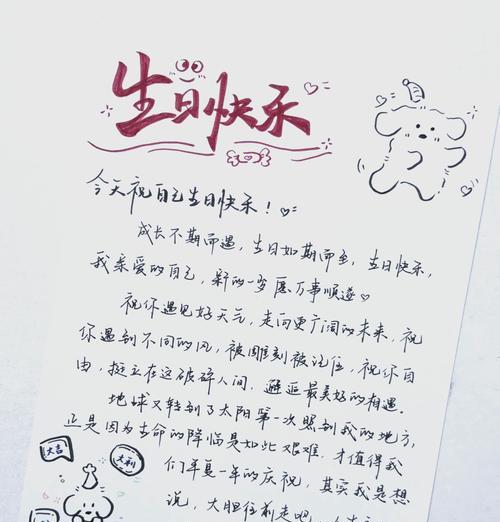 生日快乐
今天祝自己生日快乐！
成长不期而遇，生日如期而至，生日快乐，
我亲爱的自己，新的一岁愿万事顺遂
祝你遇见好天气，走向更广阔的未来，祝
你遇到不同的风，被雕刻被记住，祝你自
由，挺立在这破碎人间，邂逅最美好的相遇。
地球又转到了太阳第一次照到我的地方，
正是因为生命的降临是如此艰难，才值得我
们年复一年的庆祝，其实我是想
说，大胆往前走吧，
大吉
大利